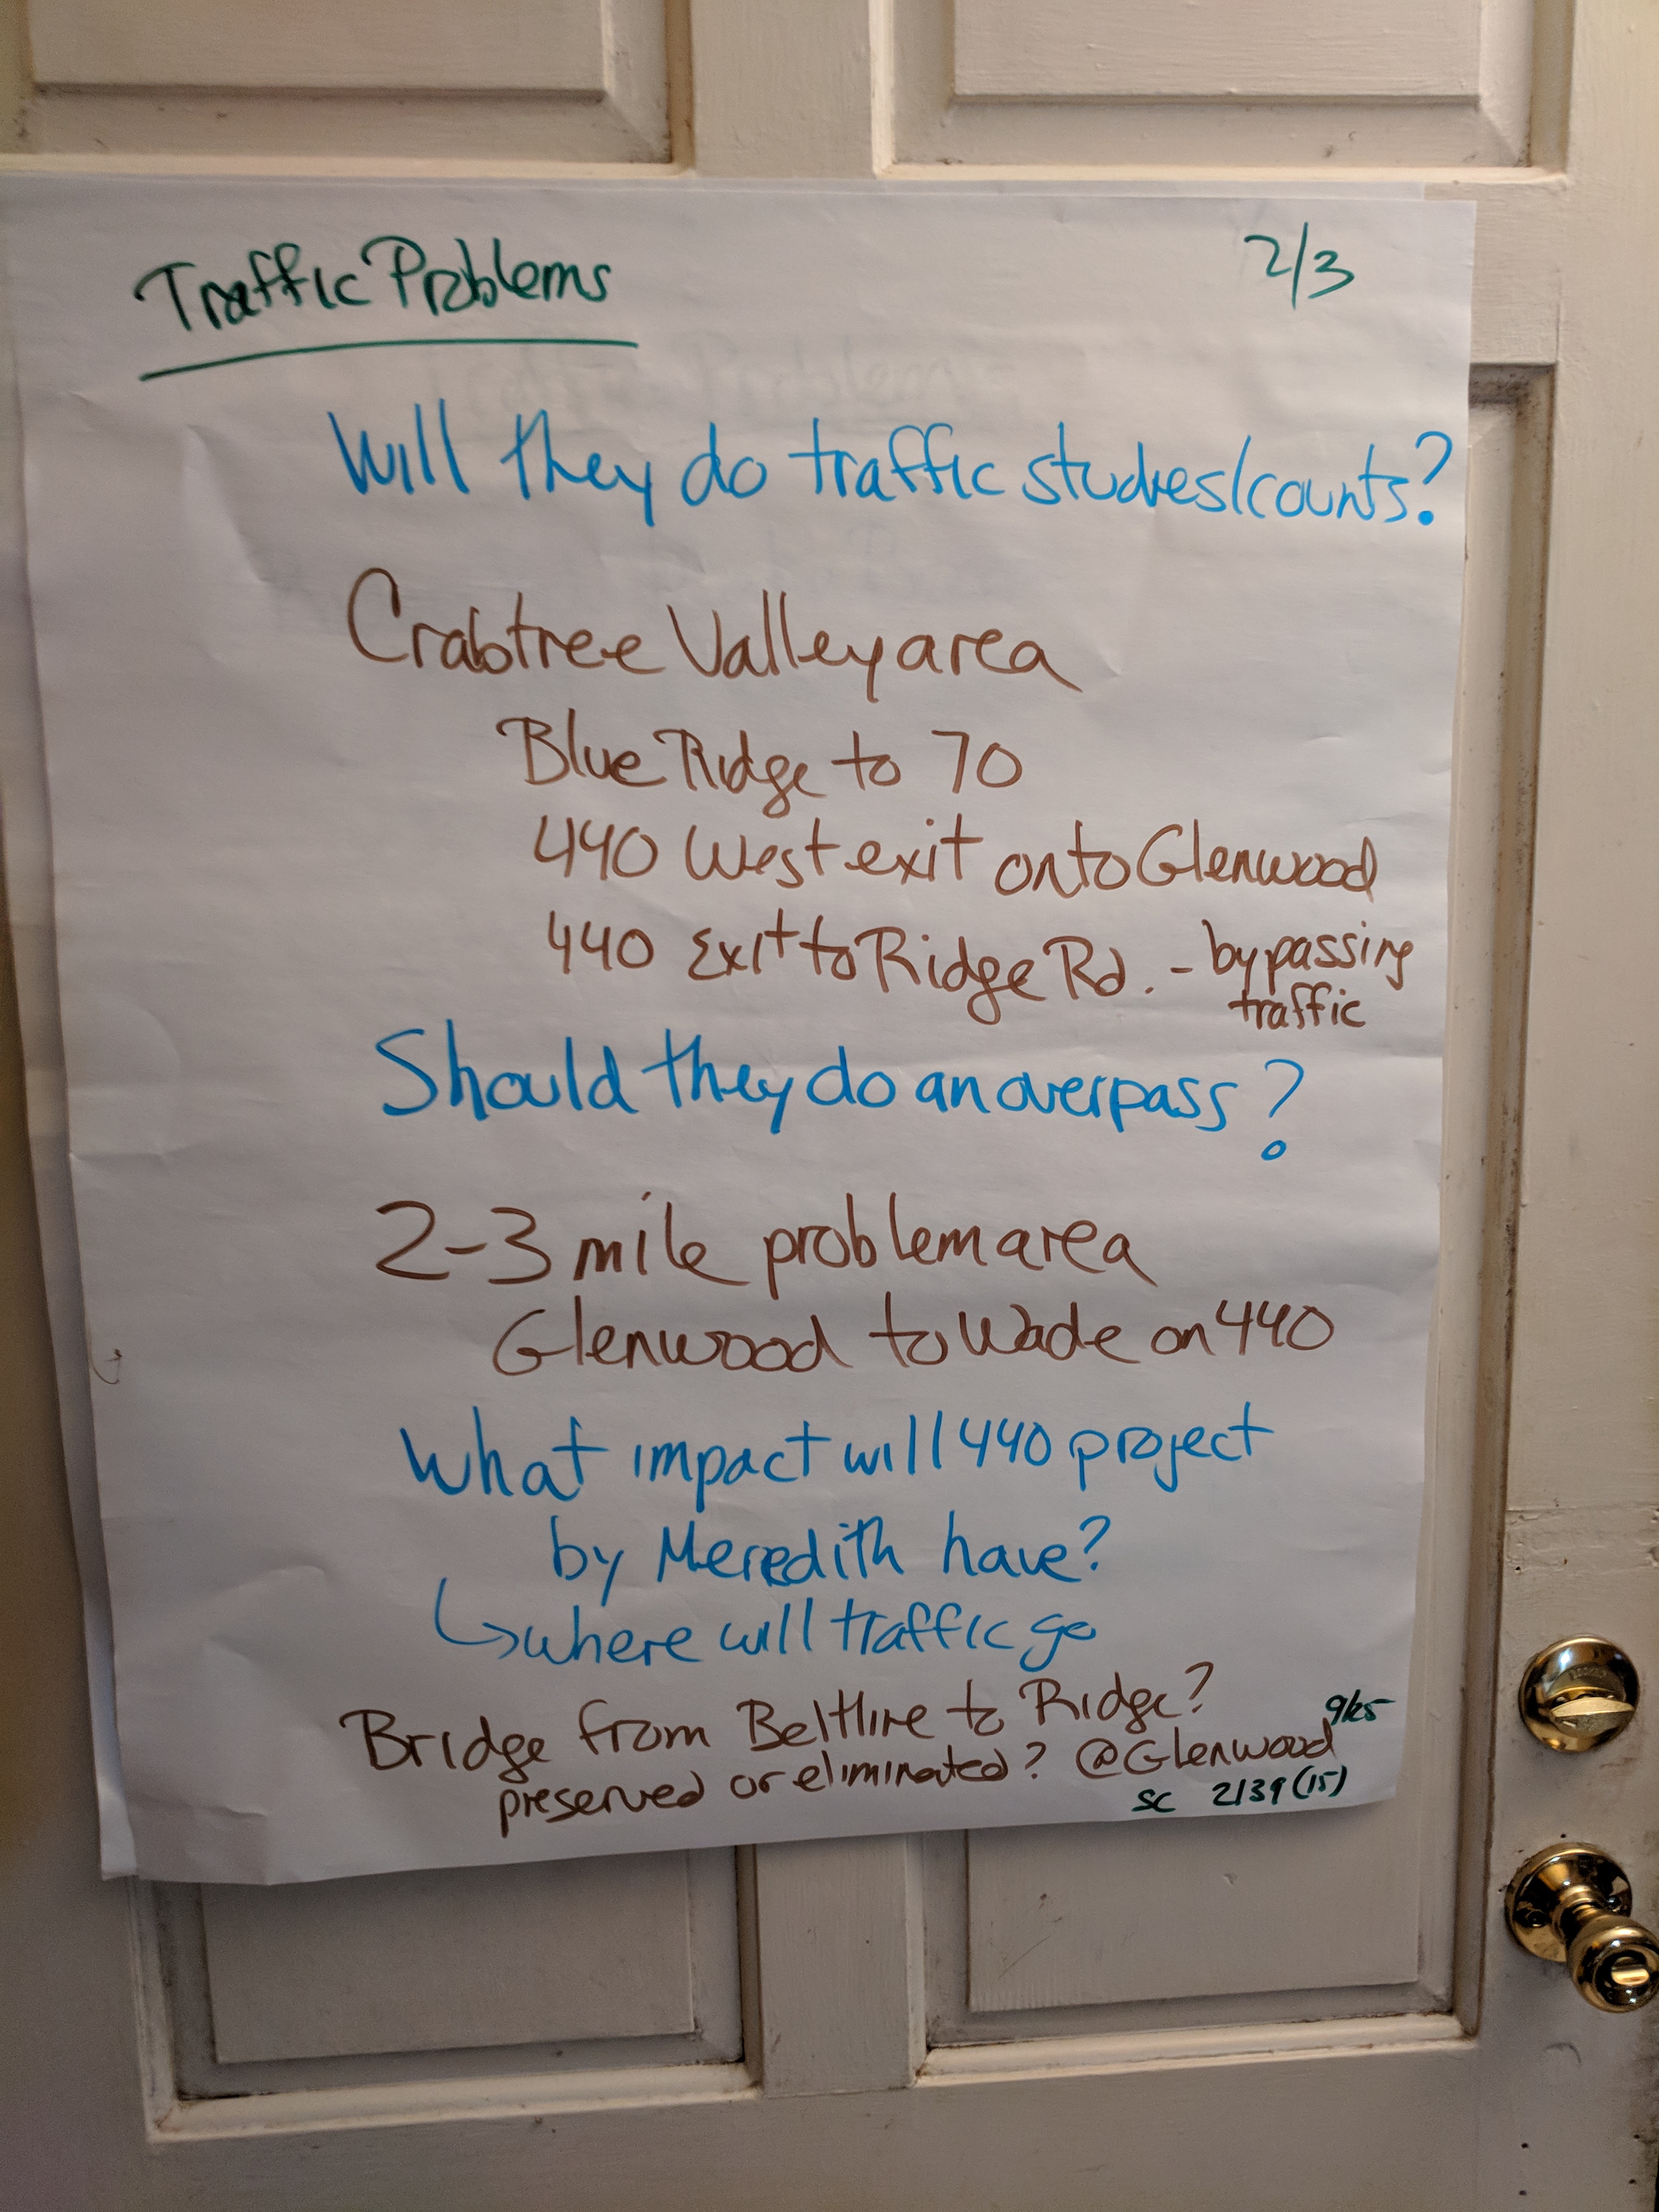 Traffic Problems 2/3
Will they do traffic studies/counts?
Crabtree Valley area
Blue Ridge to 70
440 West exit onto Glenwood
440 Exit to Ridge Rd. - bypassing
traffic
Should they do an overpass?
2-3 mile problem area
Glenwood to Wade on 440
What impact will 440 project
by Meredith have?
↳ where will traffic go
Bridge from Beltline to Ridge?
9/25
preserved or eliminated? @Glenwood
SC 2139 (15)